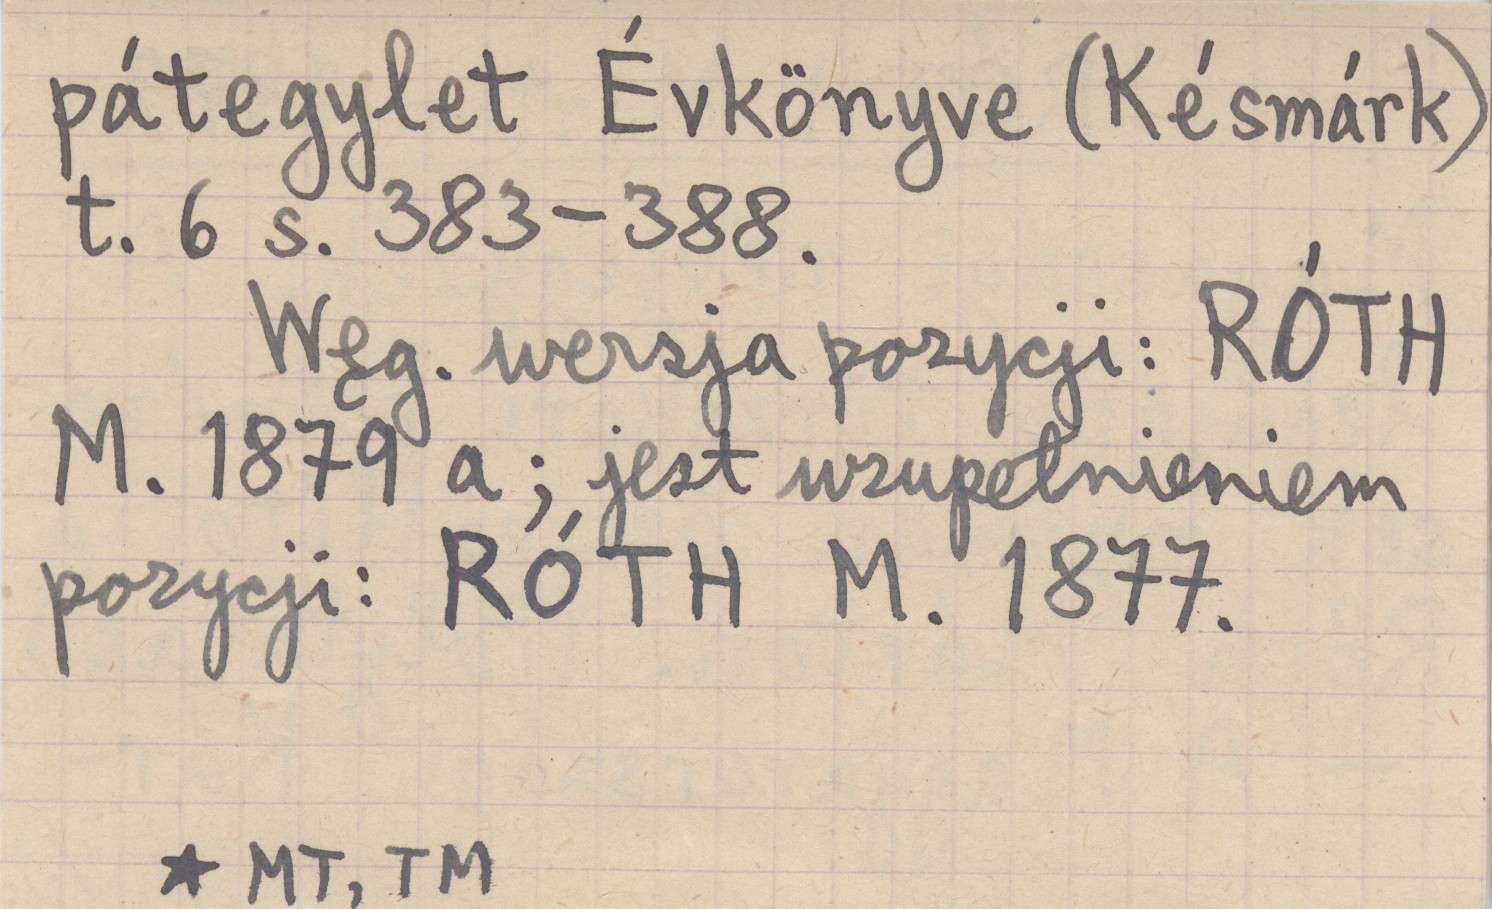 pátegylet Évkönyve (Késmárk)
t. 6 s. 383-388.
Węg. wersja pozycji: RÓTH
M. 1879 a; jest uzupełnieniem
pozycji: RÓTH M. 1877.
★ MT, TM